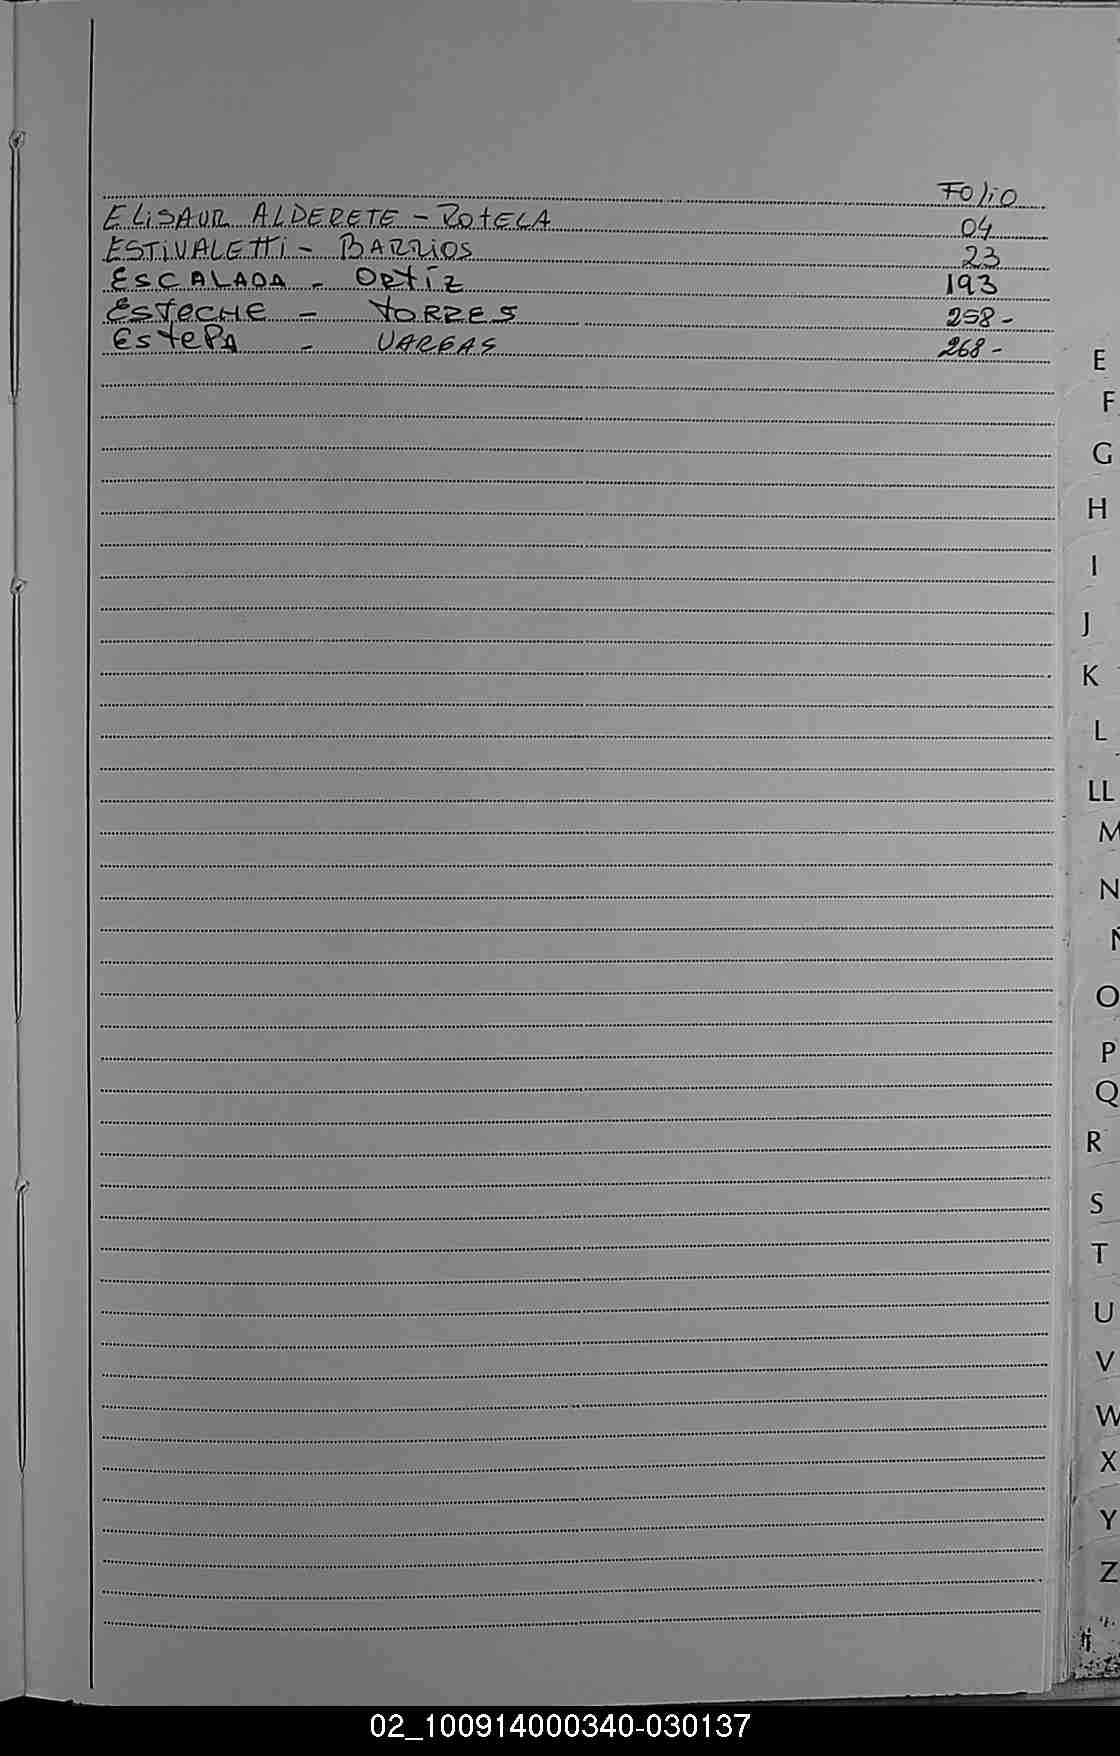 FOLIO
ELISAUR ALDERETE - ROTELA 04
ESTIVALETTI - BARRIOS 23
ESCALADA - ORTÍZ 193
ESTECHE - TORRES 258-
ESTEPA - VARGAS 268-
E
F
G
H
I
J
K
L
LL
M
N
Ñ
O
P
Q
R
S
T
U
V
W
X
Y
Z
02_100914000340-030137